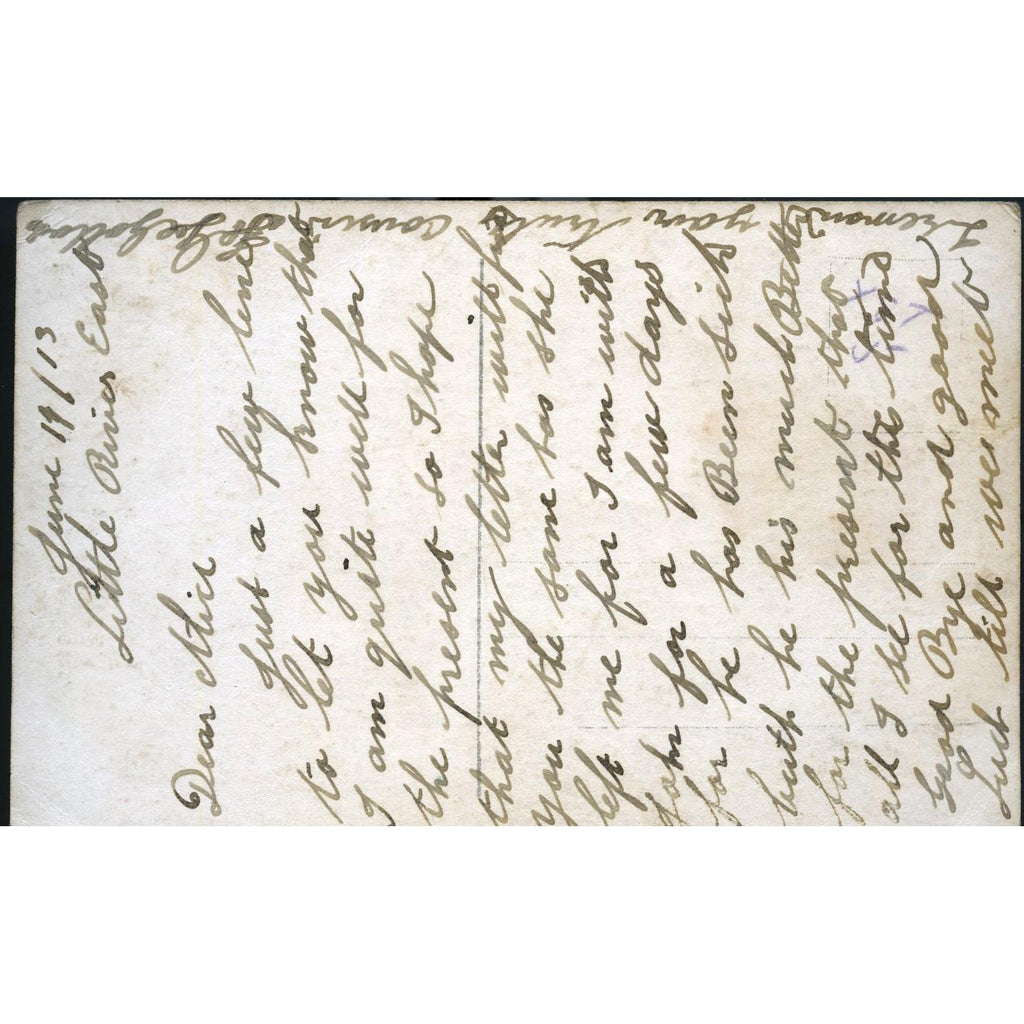 June 19/13
Little River East
Dear Alice
Just a few line
to let you know that
I am quite well for
the present so I hope
that my letter will find
you the same has she
left me for I am with
John for a few days
for he has Been sick
but he his much Better
for the present thas
all I see for the time
Good Bye and good
Luck till we meet
I remain your truly
cousin